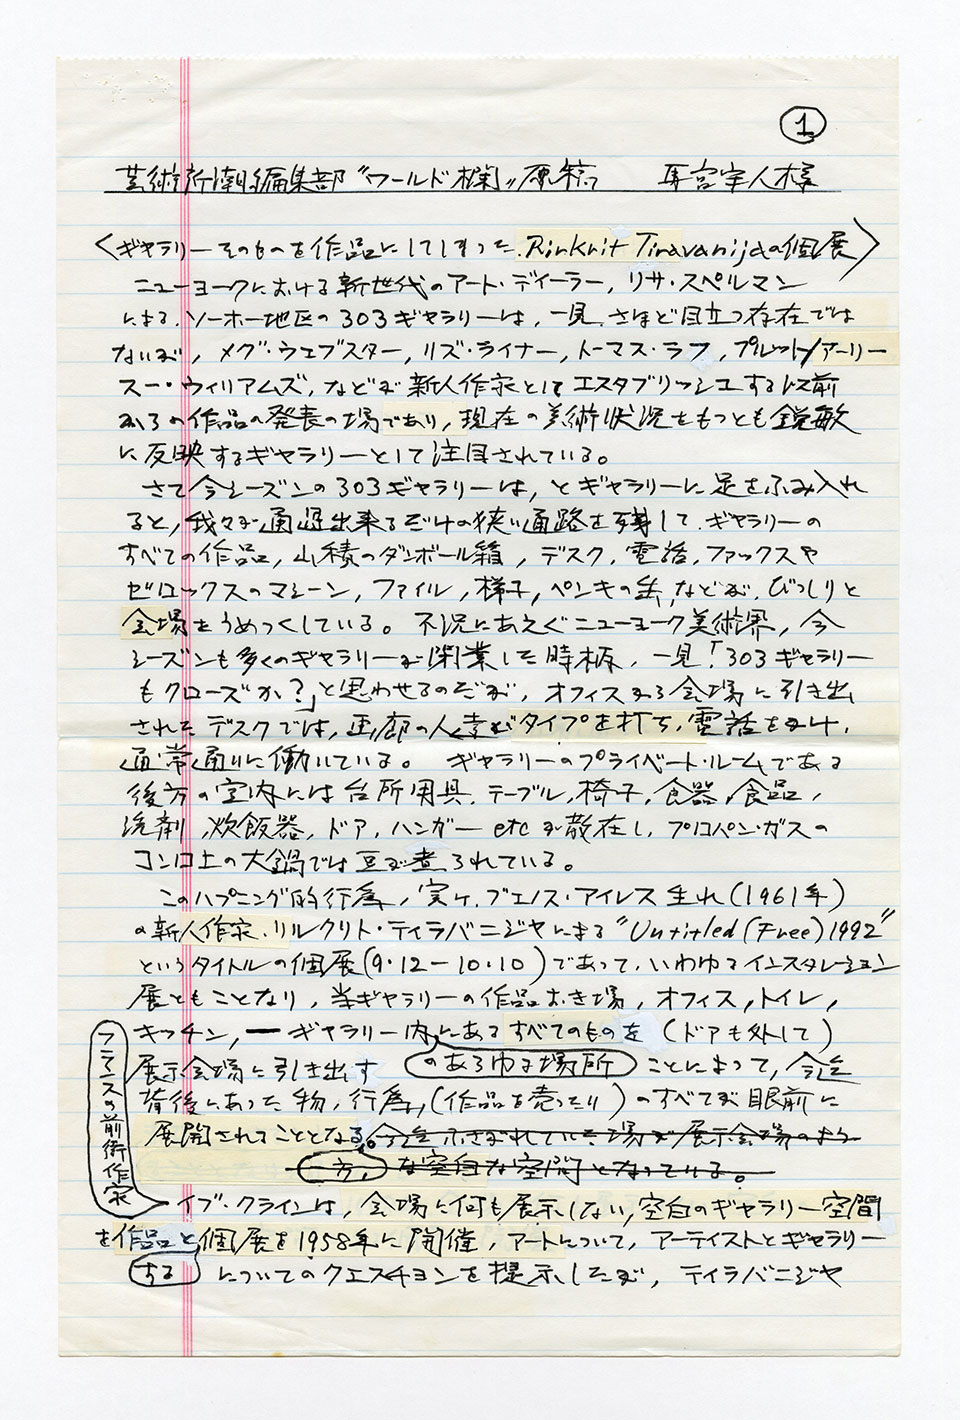 ①
芸術新潮編集部 "ワールド欄" 原稿 耳宮宰人様
〈ギャラリーそのものを作品にしてしまった Rirkrit Tiravanijaの個展〉
ニューヨークにおける新世代のアート・ディーラー, リサ・スペルマン
による, ソーホー地区の303ギャラリーは, 一見, さほど目立つ存在では
ないが, メグ・ウェブスター, リズ・ライナー, トーマス・ラフ,
スー・ウィリアムズ, などが新人作家としてエスタブリッシュする以前
からの作品の発表の場であり, 現在の美術状況をもっとも鋭敏
に反映するギャラリーとして注目されている。
さて今シーズンの303ギャラリーは, とギャラリーに足をふみ入れ
ると, 我々が通過出来るだけの狭い通路を残して, ギャラリーの
すべての作品, 山積のダンボール箱, デスク, 電話, ファックスや
ゼロックスのマシーン, ファイル, 梯子, ペンキの缶, などが, びっしりと
会場をうめつくしている。 不況にあえぐニューヨーク美術界, 今
シーズンも多くのギャラリーが閉業した時柄, 一見「303ギャラリー
もクローズか?」と思わせるのだが, オフィスから会場に引き出
されたデスクでは, 画廊の人達がタイプを打ち, 電話をかけ,
通常通りに働いている。 ギャラリーのプライベート・ルームである
後方の室内には台所用具, テーブル, 椅子, 食器, 食品,
洗剤, 炊飯器, ドア, ハンガー etc が散在し, プロパン・ガスの
コンロ上の大鍋では豆が煮られている。
このハプニング的行為, 実ケ, ブエノス・アイレス生れ(1961年)
の新人作家, リルクリト・ティラバニジャによる "Untitled (Free) 1992"
というタイトルの個展(9・12ー10・10)であって, いわゆるインスタレーション
展ともことなり, 当ギャラリーの作品おき場, オフィス, トイレ,
キッチン, ー ギャラリー内にあるすべてのものを (ドアも外して)
展示会場に引き出す のあらゆる場所 ことによって, 今迄
背後にあった物, 行為, (作品を売ったり) のすべてが眼前に
展開されてこととなる。今迄ふさがれていた場が展示会場のよう
一方, な空白な空間となっている。
フランスの前衛作家
イブ・クラインは, 会場に何も展示しない, 空白のギャラリー空間
を作品と個展を1958年に開催, アートについて, アーティストとギャラリー
する についてのクエスチョンを提示したが, ティラバニジャ